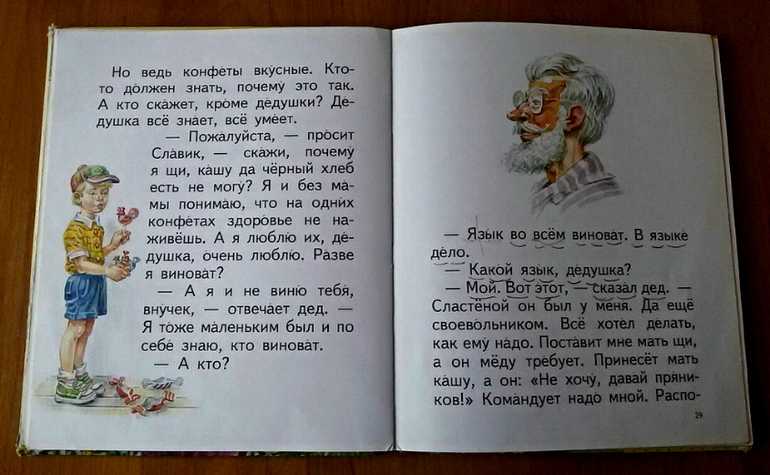 Но ведь конфе́ты вку́сные. Кто-
то до́лжен знать, почему́ э́то так.
А кто ска́жет, кро́ме де́душки? Де́-
душка всё зна́ет, всё уме́ет.
— Пожа́луйста, — про́сит
Сла́вик, — скажи́, почему́
я щи, ка́шу да чёрный хлеб
есть не могу́? Я и без ма́-
мы понима́ю, что на одни́х
конфе́тах здоро́вье не на-
живёшь. А я люблю́ их, де́-
душка, о́чень люблю́. Ра́зве
я винова́т?
— А я и не виню́ тебя́,
вну́чек, — отвеча́ет дед. —
Я то́же ма́леньким был и по
себе́ зна́ю, кто винова́т.
— А кто?
— Язы́к во всём винова́т. В языке́
де́ло.
— Како́й язы́к, де́душка?
— Мой. Вот э́тот, — сказа́л дед. —
Сластёной он был у меня́. Да ещё
своево́льником. Всё хоте́л де́лать,
как ему́ на́до. Поста́вит мне мать щи,
а он мёду тре́бует. Принесёт мать
ка́шу, а он: «Не хочу́, дава́й пря́ни-
ков!» Кома́ндует на́до мной. Распо-
29